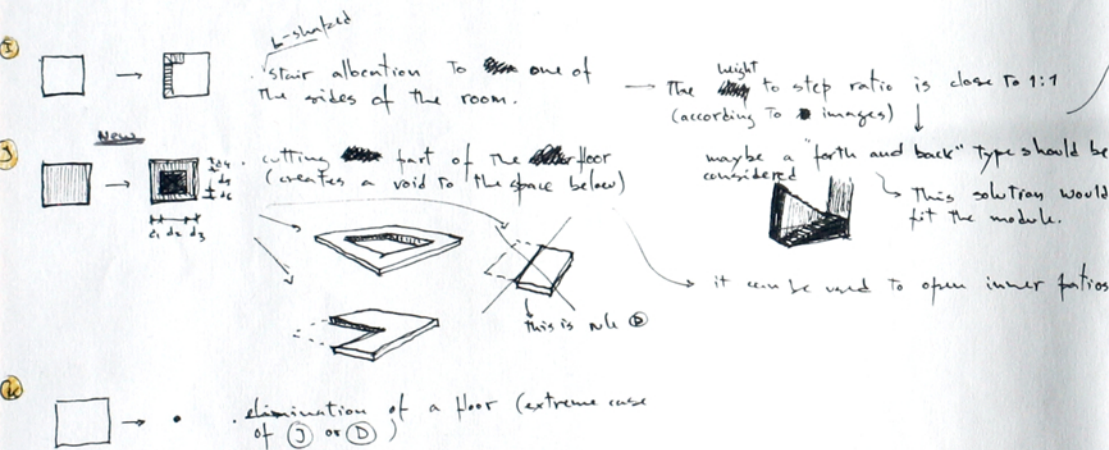 I
L-shaped
stair albcation to one of
the sides of the room.
→ The height to step ratio is close to 1:1
(according to images)
maybe a "forth and back" type should be
considered
This solution would
fit the module.
New
J
cutting part of the floor
(creates a void to the space below)
d4
d5
d6
d1 d2 d3
it can be used to open inner patios
this is rule D
K
. elimination of a floor (extreme case
of J or D)